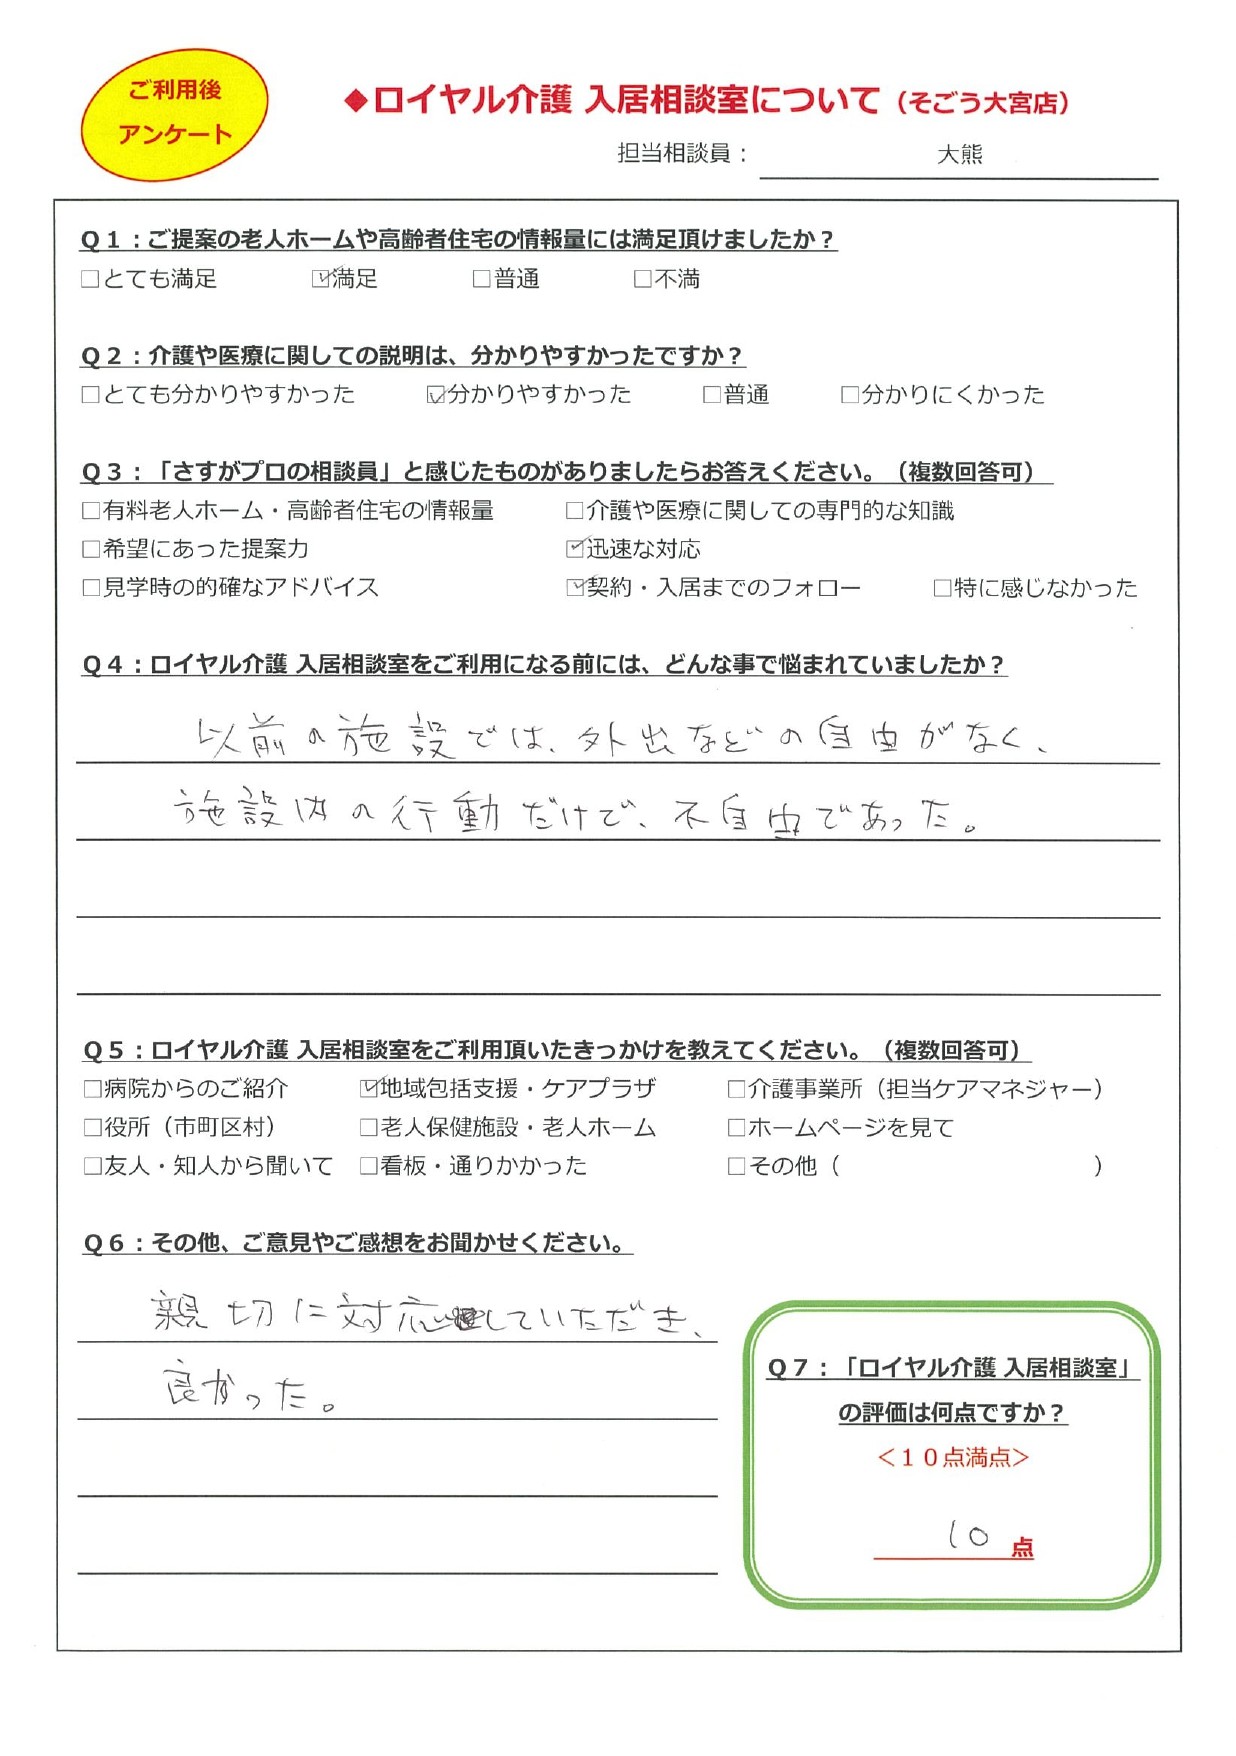 ご利用後
アンケート
◆ロイヤル介護 入居相談室について（そごう大宮店）
担当相談員： 大熊
Q１：ご提案の老人ホームや高齢者住宅の情報量には満足頂けましたか？
□とても満足 ☑満足 □普通 □不満
Q２：介護や医療に関しての説明は、分かりやすかったですか？
□とても分かりやすかった ☑分かりやすかった □普通 □分かりにくかった
Q３：「さすがプロの相談員」と感じたものがありましたらお答えください。（複数回答可）
□有料老人ホーム・高齢者住宅の情報量 □介護や医療に関しての専門的な知識
□希望にあった提案力 ☑迅速な対応
□見学時の的確なアドバイス ☑契約・入居までのフォロー □特に感じなかった
Q４：ロイヤル介護 入居相談室をご利用になる前には、どんな事で悩まれていましたか？
以前の施設では、外出などの自由がなく、
施設内の行動だけで、不自由であった。
Q５：ロイヤル介護 入居相談室をご利用頂いたきっかけを教えてください。（複数回答可）
□病院からのご紹介 ☑地域包括支援・ケアプラザ □介護事業所（担当ケアマネジャー）
□役所（市町区村） □老人保健施設・老人ホーム □ホームページを見て
□友人・知人から聞いて □看板・通りかかった □その他（ ）
Q６：その他、ご意見やご感想をお聞かせください。
親切に対応していただき、
良かった。
Q７：「ロイヤル介護 入居相談室」
の評価は何点ですか？
＜１０点満点＞
10 点